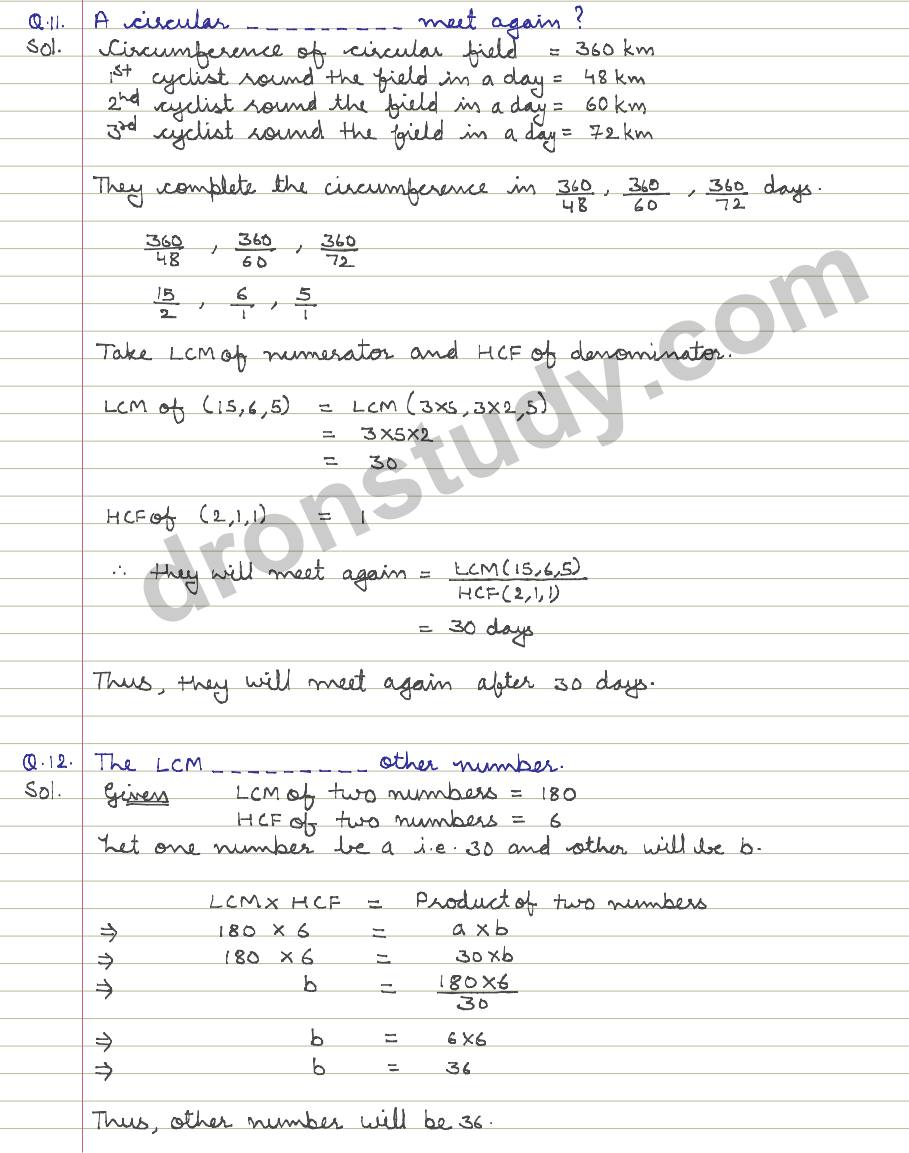 Q.11. A circular _ _ _ _ _ _ _ _ _ meet again ?
Sol. Circumference of circular field = 360 km
1st cyclist round the field in a day = 48 km
2nd cyclist round the field in a day = 60 km
3rd cyclist round the field in a day = 72 km
They complete the circumference in 360/48 , 360/60 , 360/72 days.
360/48 , 360/60 , 360/72
15/2 , 6/1 , 5/1
Take LCM of numerator and HCF of denominator.
LCM of (15,6,5) = LCM (3×5, 3×2, 5)
= 3×5×2
= 30
HCF of (2,1,1) = 1
∴ they will meet again = LCM(15,6,5)/HCF(2,1,1)
= 30 days
Thus, they will meet again after 30 days.
Q.12. The LCM _ _ _ _ _ _ _ _ _ other number.
Sol. Given LCM of two numbers = 180
HCF of two numbers = 6
Let one number be a i.e. 30 and other will be b.
LCM × HCF = Product of two numbers
⇒ 180 × 6 = a × b
⇒ 180 × 6 = 30 × b
⇒ b = 180×6/30
⇒ b = 6×6
⇒ b = 36
Thus, other number will be 36.
dronstudy.com